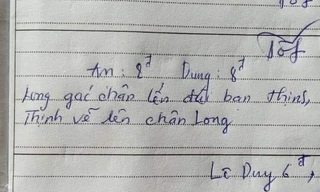 Tốt
An: 2đ Dung: 8đ
Long gác chân lên đùi bạn Thịnh,
Thịnh vẽ lên chân Long
Lê Duy 6đ,